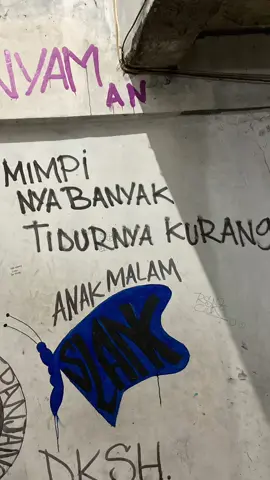 NYAM
AN
MIMPI
NYA BANYAK
TIDURNYA KURANG
ANAK MALAM
SLANK
PANJANG
DKSH.